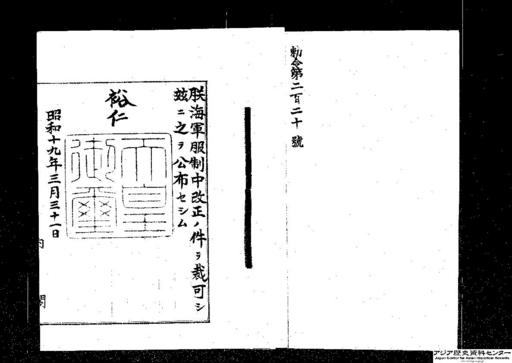 勅令第二百二十號
朕海軍服制中改正ノ件ヲ裁可シ
玆ニ之ヲ公布セシム
裕仁
天皇御璽
昭和十九年三月三十一日
内
閣
アジア歴史資料センター
Japan Center for Asian Historical Records